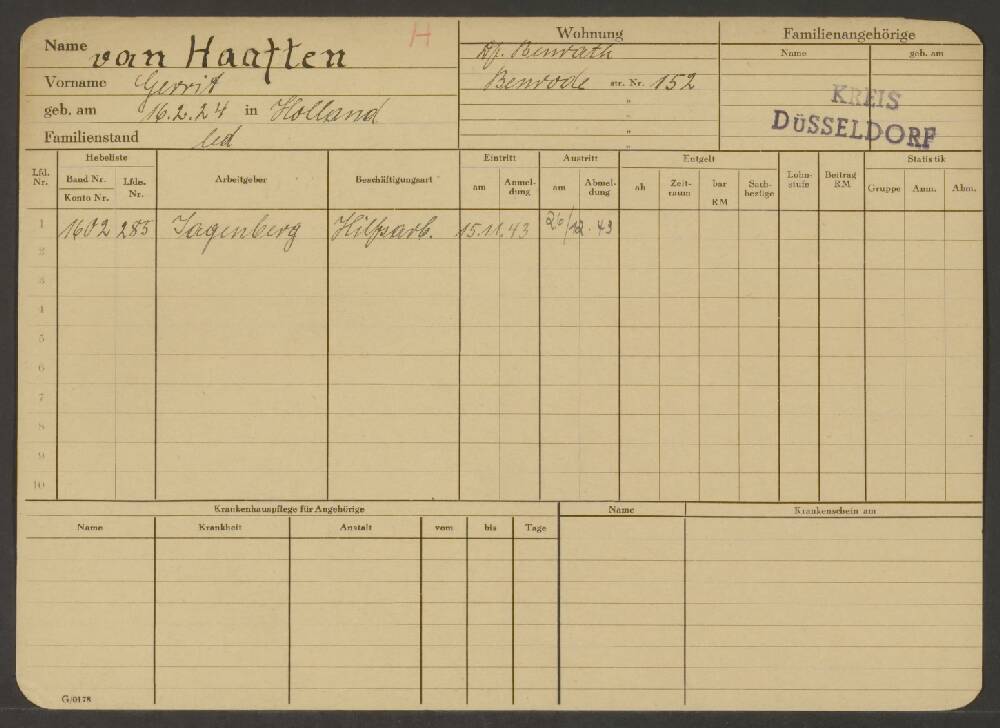 H
Name van Haaften
Vorname Gerrit
geb. am 16.2.24 in Holland
Familienstand led
Wohnung
Df. Benrath
Benrode str. Nr. 152
"
"
"
Familienangehörige
Name geb. am
KREIS
DÜSSELDORF
Lfd. Nr.
Hebeliste
Band Nr.
Konto Nr.
Lfde. Nr.
Arbeitgeber
Beschäftigungsart
Eintritt
am Anmel-dung
Austritt
am Abmel-dung
Entgelt
ab Zeit-raum bar RM Sach-bezüge
Lohn-stufe
Beitrag RM
Statistik
Gruppe Anm. Abm.
1 1602 285 Jagenberg Hilfsarb. 15.11.43 26/12.43
2
3
4
5
6
7
8
9
10
Krankenhauspflege für Angehörige
Name Krankheit Anstalt vom bis Tage
Name Krankenschein am
G/0178